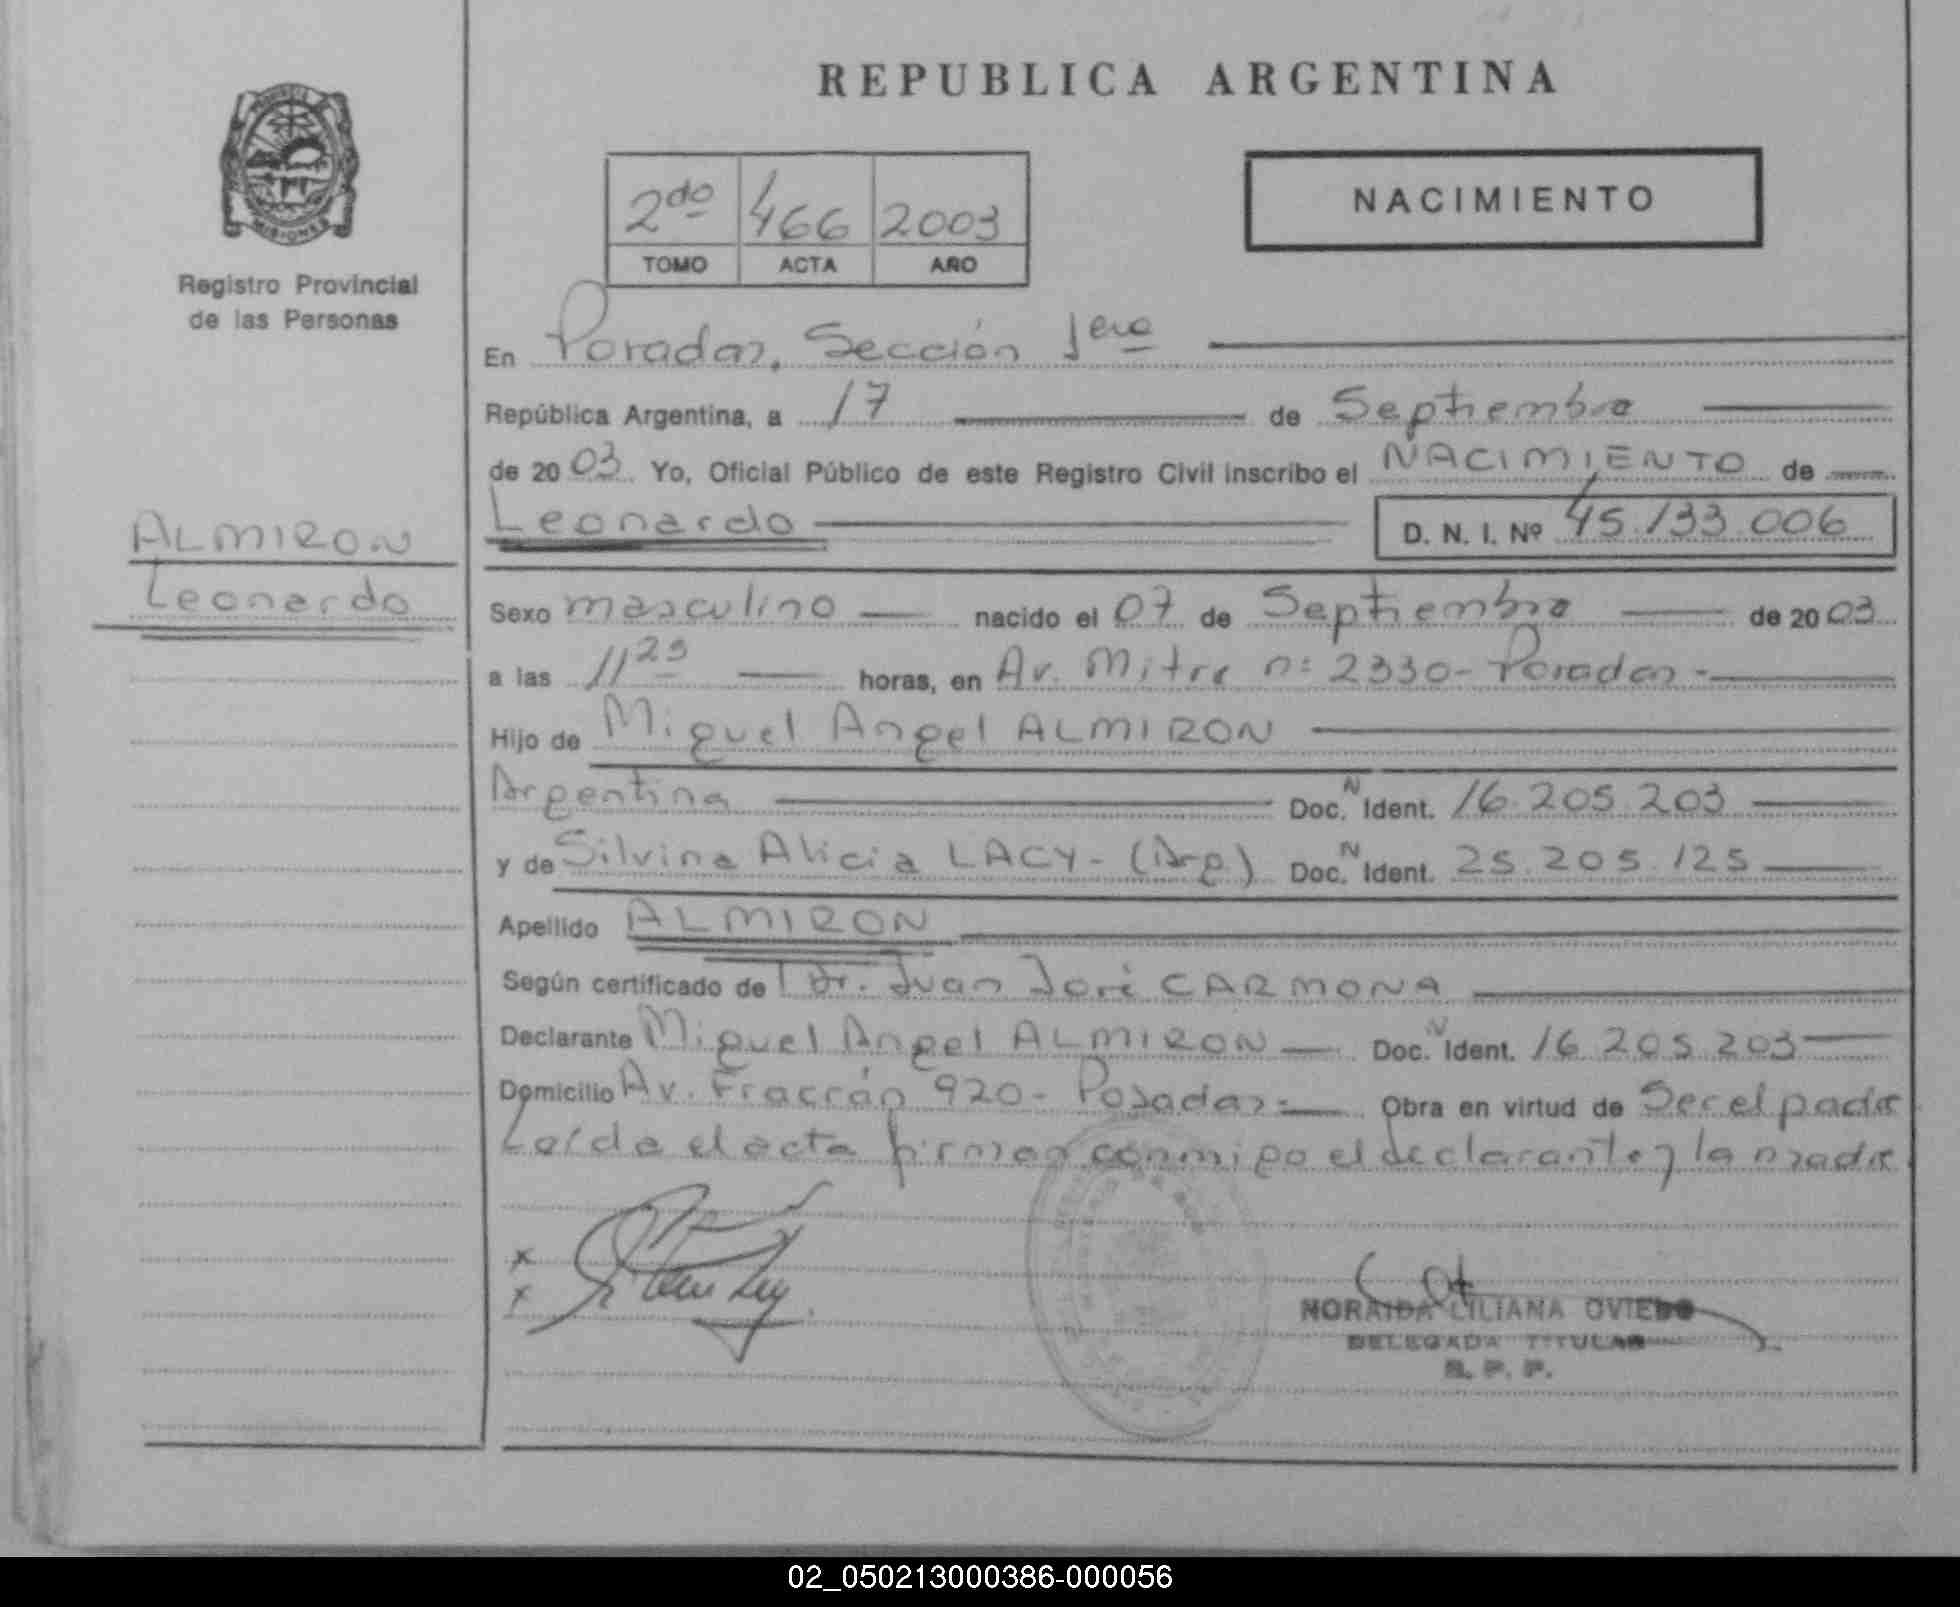 REPUBLICA ARGENTINA
PROVINCIA DE
MISIONES
Registro Provincial
de las Personas
2do 466 2003
TOMO ACTA AÑO
NACIMIENTO
En Posadas, Sección 1era
República Argentina, a 17 de Septiembre
de 2003 Yo, Oficial Público de este Registro Civil inscribo el NACIMIENTO de
Leonardo D. N. I. Nº 45.133.006
ALMIRON
Leonardo
Sexo masculino nacido el 07 de Septiembre de 2003
a las 11 25 horas, en Av. Mitre nº 2330 - Posadas -
Hijo de Miguel Angel ALMIRON
Argentina Doc. N Ident. 16.205.203
y de Silvina Alicia LACY - (Arg) Doc. N Ident. 25.205.125
Apellido ALMIRON
Según certificado de Dr. Juan José CARMONA
Declarante Miguel Angel ALMIRON Doc. N Ident. 16.205.203
Domicilio Av. Fracrán 920 - Posadas - Obra en virtud de Ser el padre
Leída el acta firman conmigo el declarante y la madre
x
x
NORAIDA LILIANA OVIEDO
DELEGADA TITULAR
R. P. P.
02_050213000386-000056